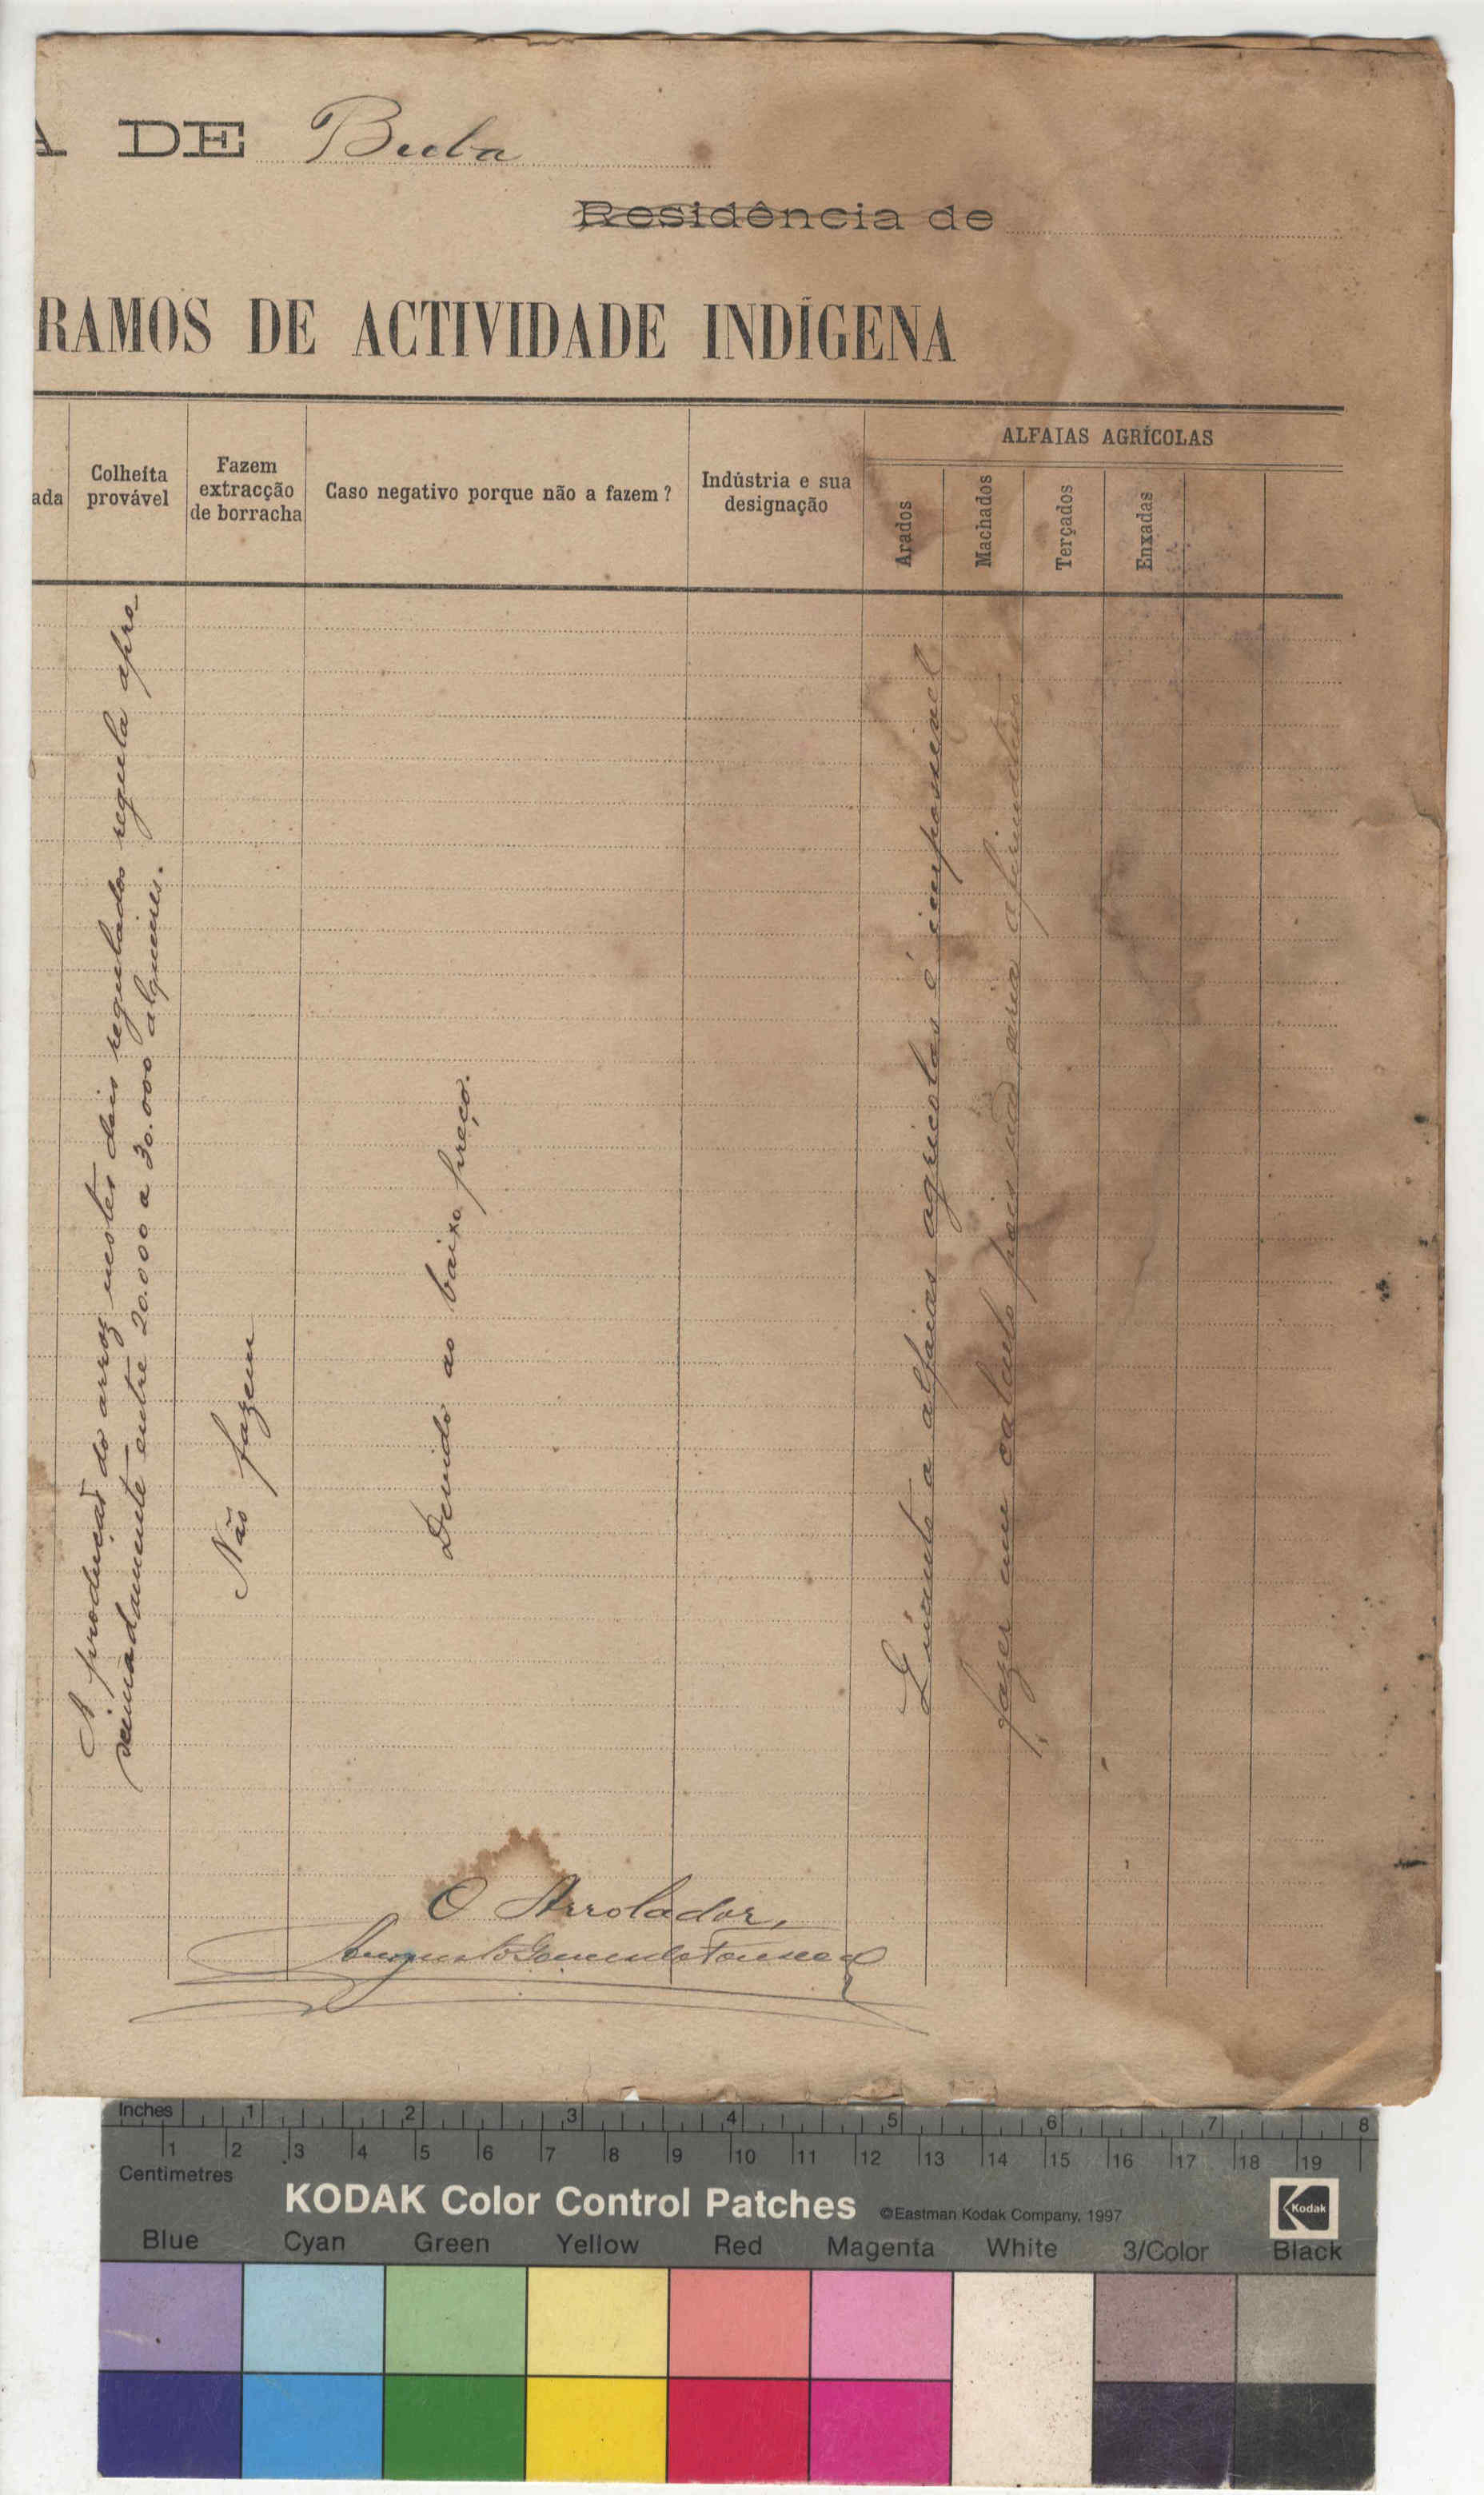 A DE Buba
Residência de
RAMOS DE ACTIVIDADE INDÍGENA
ada
Colheita
provável
Fazem
extracção
de borracha
Caso negativo porque não a fazem?
Indústria e sua
designação
ALFAIAS AGRÍCOLAS
Arados
Machados
Terçados
Enxadas
A producão do arroz nestes dois regulados regula apro-
ximadamente entre 20.000 a 30.000 alqueires.
Não fazem
Devido ao baixo preço.
Quanto a alfaias agricolas é impossivel
fazer um calculo pois não seria
O Arrolador,
Augusto Gomes da Fonseca
Inches 1 2 3 4 5 6 7 8
1 2 3 4 5 6 7 8 9 10 11 12 13 14 15 16 17 18 19
Centimetres
KODAK Color Control Patches ©Eastman Kodak Company, 1997 Kodak
Blue Cyan Green Yellow Red Magenta White 3/Color Black